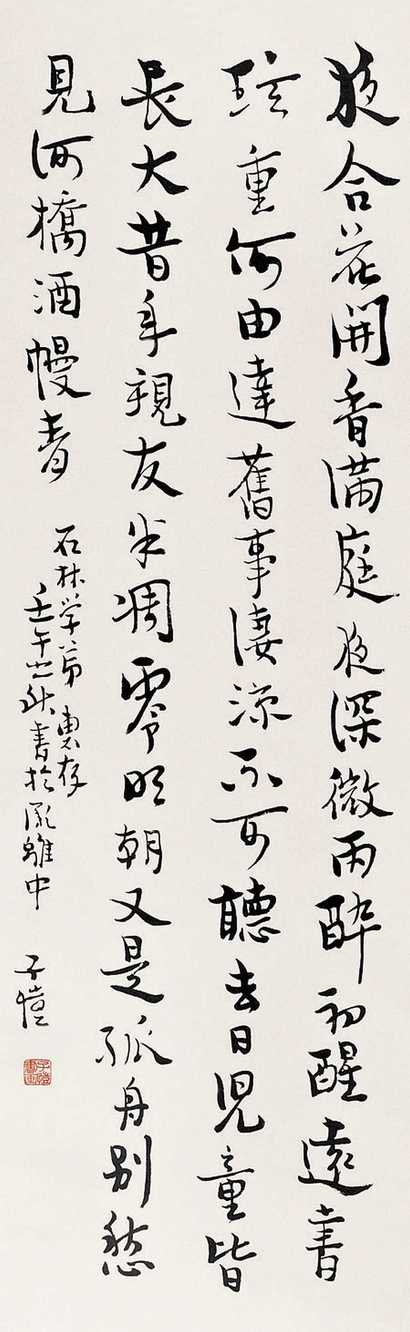 夜合花開香滿庭夜深微雨醉初醒遠書
珍重何由達舊事淒涼不可聽去日兒童皆
長大昔年親友半凋零明朝又是孤舟別愁
見河橋酒幔青
石林学弟惠存
壬午之秋書於流離中
子愷